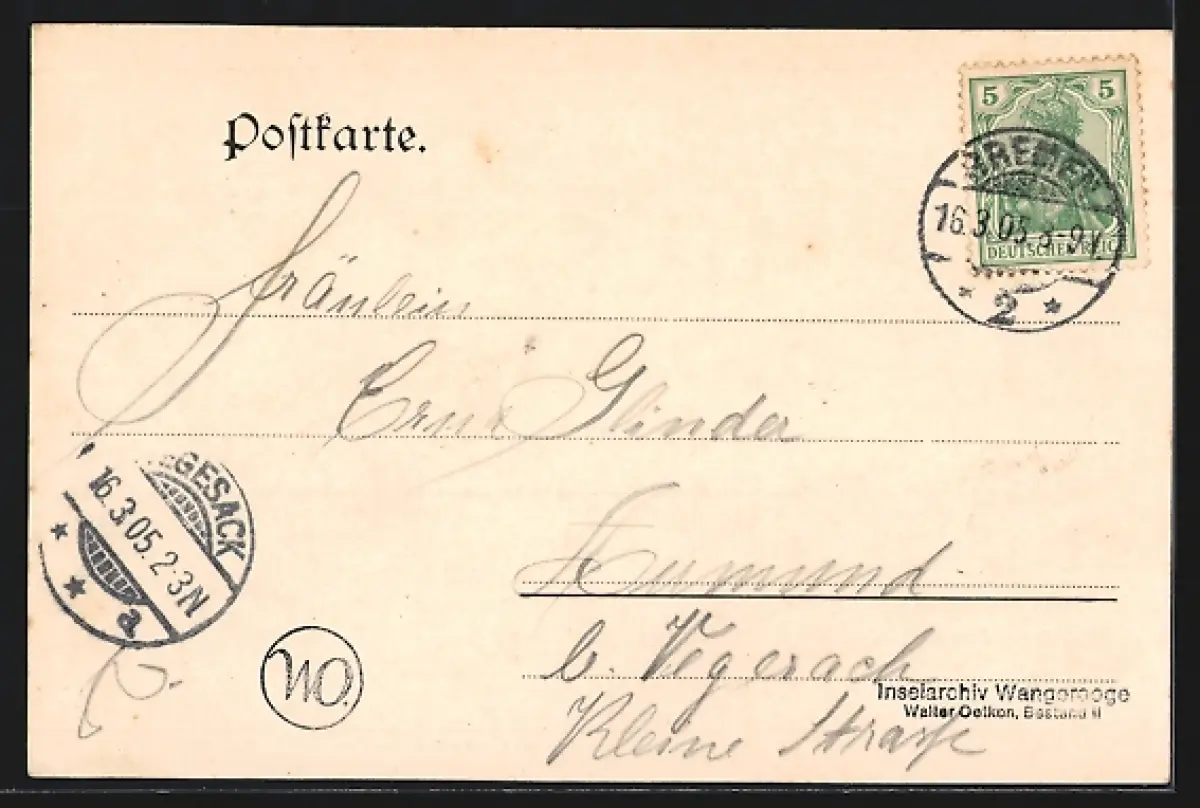 Postkarte.
5 5
DEUTSCHES REICH
BREMEN
16.3.05.8-9V.
* 2 *
Fräulein
Erna Glinder
b. Vegesack
Kleine Straße
VEGESACK
16.3.05.2-3N
* * a
NO.
Inselarchiv Wangerooge
Walter Oetken, Bestand II